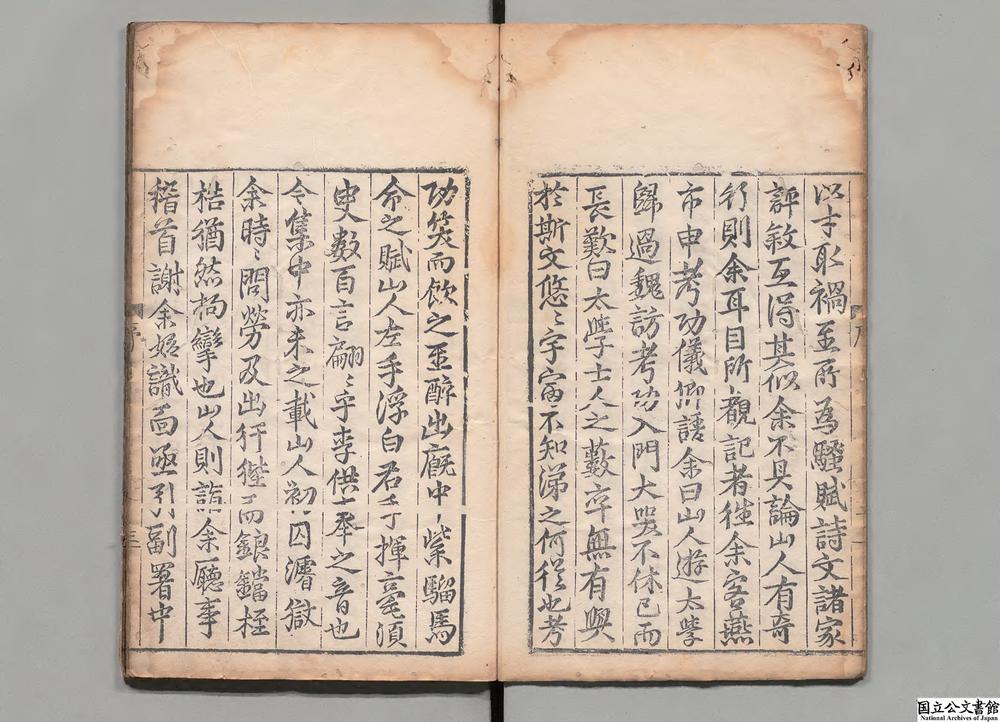 以才取禍至所為騷賦詩文諸家
評敘互得其似余不具論山人有奇
行則余耳目所覩記者往余客燕
市申考功儀卿語余曰山人遊太學
歸過魏訪考功入門大哭不休已而
長歎曰太學士人之藪卒無有與
於斯文悠〻宇宙不知涕之何從也考
功笑而飲之至醉出廐中紫騮馬
令之賦山人左手浮白右手揮毫須
臾數百言翩〻乎李供奉之音也
今集中亦未之載山人初囚濬獄
余時〻問勞及出犴狴而鋃鐺桎
梏猶然拘攣也山人則詣余廳事
稽首謝余始識面亟引副署中
序
三
国立公文書館
National Archives of Japan